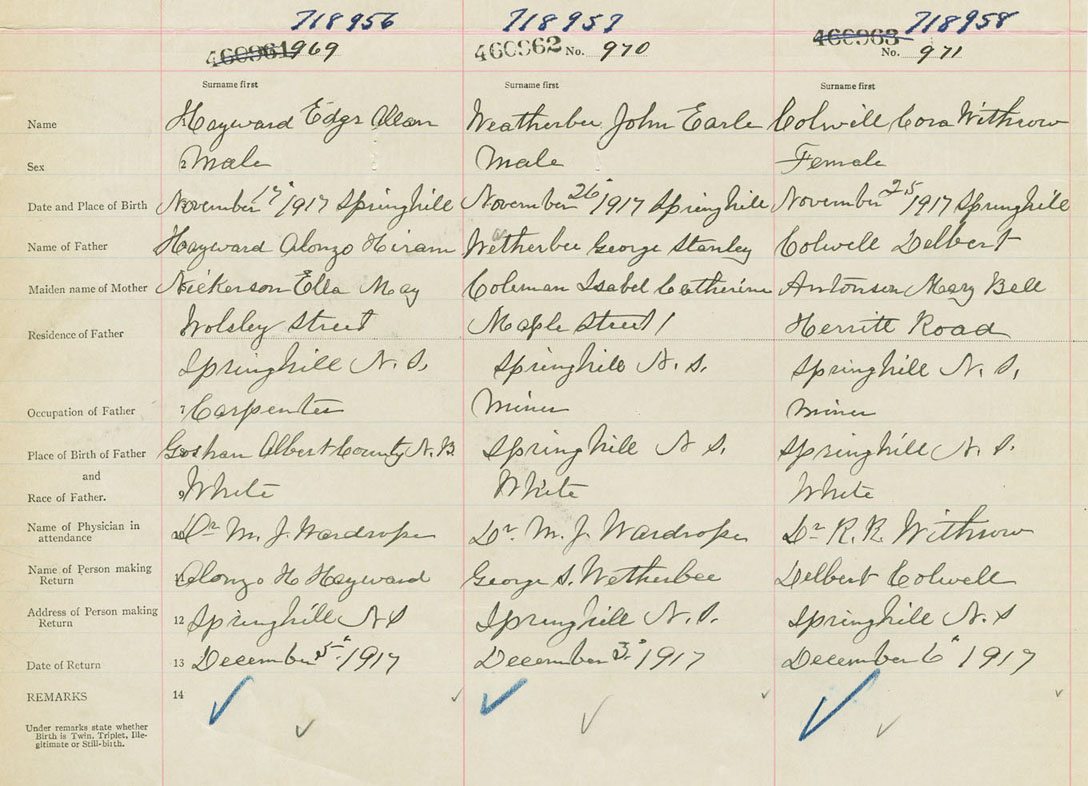 718956 718957 718958
460961 969 460962 No. 970 460963 No. 971
Surname first Surname first Surname first
Name 1 Hayward Edgr Allan Weatherbee John Earle Colwill Cora Withrow
Sex 2 Male Male Female
Date and Place of Birth 3 November 17" 1917 Springhill November 26" 1917 Springhill November 25 1917 Springhill
Name of Father Hayward Alonzo Hiram Wetherbee George Stanley Colwell Delbert
Maiden name of Mother Nickerson Ella May Coleman Isabel Catherine Antonsen Mary Bell
Residence of Father Wolsley Street Maple Street Herritt Road
Springhill N. S. Springhill N. S. Springhill N. S.
Occupation of Father 7 Carpenter Miner Miner
Place of Birth of Father 8 Goshan Albert County N. B Springhill N S. Springhill N. S.
and
Race of Father. 9 White White White
Name of Physician in attendance 10 Dr M. J. Wardrope Dr. M. J. Wardrope Dr R. R. Withrow
Name of Person making Return 11 Alonzo H Hayward George S. Wetherbee Delbert Colwell
Address of Person making Return 12 Springhill N S Springhill N. S. Springhill N. S
Date of Return 13 December 5" 1917 December 3" 1917 December 6" 1917
REMARKS 14
Under remarks state whether
Birth is Twin, Triplet, Ille-
gitimate or Still-birth.